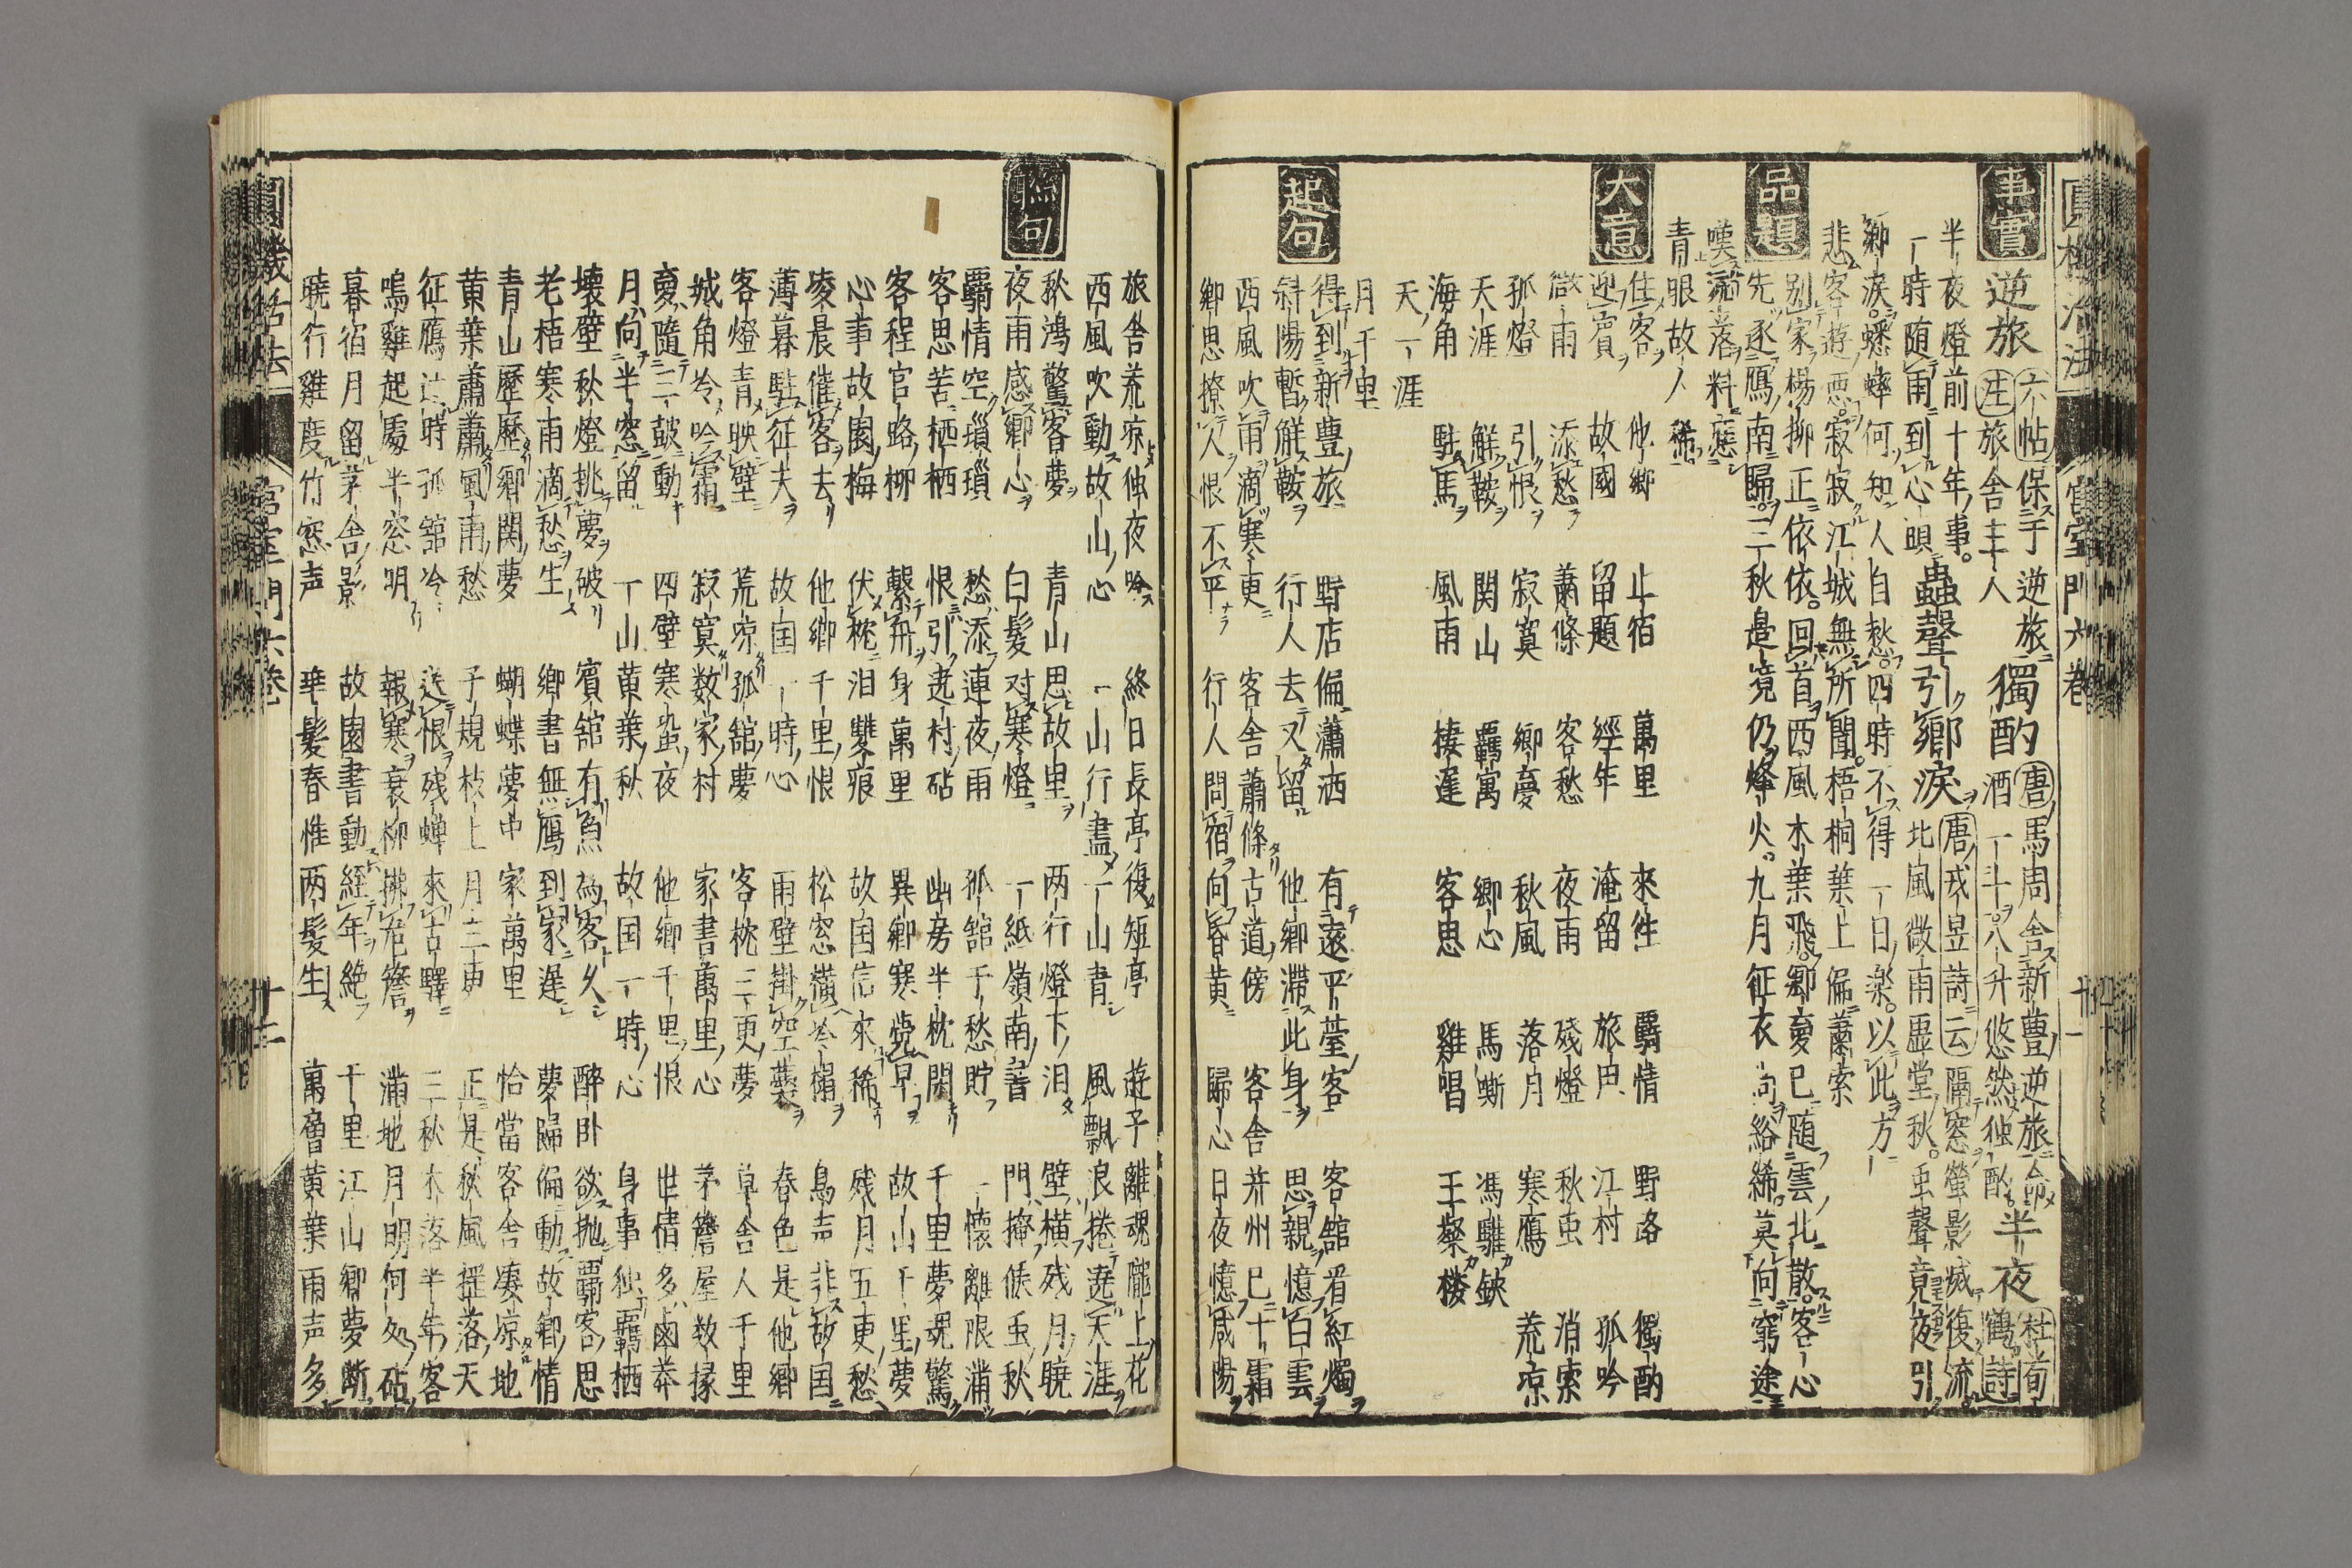 圓機活法 宮室門六卷 廿一
事實
逆旅 六帖 保于逆旅 注 旅舍主人 獨酌 唐馬周舍新豊逆旅命酒一斗八升悠然独酌 半夜 杜荀鶴詩
半夜燈前十年事
一時随雨到心頭 蟲聲引鄉淚 唐戎昱詩云 隔窓螢影滅復流
北風微雨虚堂秋虫聲竟夜引
鄉淚蟋蟀何知人自愁四時不得一日楽以此方
悲客遊悪寂寂江城無所聞梧桐葉上偏蕭索
品題
别家楊柳正依依回首西風木葉飛鄉夏已随雲北散客心
先逐鴈南歸三秋邉境仍烽火九月征衣尚絺莫向窮途
嘆流落料應
青眼故人稀
大意
住客 他鄉 止宿 萬里 來往 羇情 野路 獨酌
迎賓 故國 留題 經年 淹留 旅店 江村 孤吟
微雨 添愁 蕭條 客愁 夜雨 殘燈 秋虫 消索
孤燈 引恨 寂寞 鄉夢 秋風 落月 寒鴈 荒凉
天涯 觧鞍 関山 羈寓 鄉心 馬嘶 馮驩鋏
海角 駐馬 風雨 棲遲 客思 雞唱 王粲楼
天一涯
月千里
起句
得到新豊旅 野店偏瀟洒 有遠平臺客 客舘看紅燭
斜陽暫觧鞍 行人去又留 他鄉滞此身 思親憶白雲
西風吹雨滴寒更 客舍蕭條古道傍 客舍并州已十霜
鄉思撩人恨不平 行人問宿向昏黄 歸心日夜憶咸陽
旅舍荒凉独夜吟 終日長亭復短亭 遊子離魂隴上花
西風吹動故山心 一山行盡一山青 風飄浪捲遶天涯
聯句
秋鴻驚客夢 青山思故里 两行燈下泪 壁横残月曉
夜雨感鄉心 白髪对寒燈 一紙嶺南書 門掩候虫秋
羇情空瑣瑣 愁添連夜雨 孤舘千愁貯 一懷離限滿
客思苦栖栖 恨引遶村砧 幽房半枕閑 千里夢魂驚
客程官路柳 繫舟身萬里 異鄉寒覺早 故山千里夢
心事故園梅 伏枕泪雙痕 故国信來稀 残月五更愁
凌晨催客去 他鄉千里恨 松窓横冷榻 鳥声非故国
薄暮駐征夫 故国一時心 雨壁掛空蘘 春色是他鄉
客燈青映壁 荒凉孤舘夢 客枕三更夢 草舍人千里
城角冷吟霜 寂寞数家村 家書萬里心 茅簷屋数椽
夏随三鼓動 四壁寒蛩夜 他鄉千里恨 世情多鹵莽
月向半窓留 一山黄葉秋 故国一時心 身事独羈栖
壞壁秋燈挑夢破 賓舘有魚為客久 醉卧欲抛羇客思
老梧寒雨滴愁生 鄉書無鴈到家遲 夢歸偏動故鄉情
青山歷歷鄉関夢 蝴蝶夢中家萬里 恰當客舍凄凉地
黄葉蕭蕭風雨愁 子規枝上月三更 正是秋風揺落天
征鴈过時孤舘冷 送恨残蝉來古驛 三秋木落半年客
鳴雞起處半窓明 報寒衰柳拂危簷 滿地月明何处砧
暮宿月留茅舍影 故園書動經年絶 千里江山鄉夢断
曉行雞度竹窓声 華髪春惟两髪生 萬畳黄葉雨声多
圓機活法 宮室門六卷 廿二